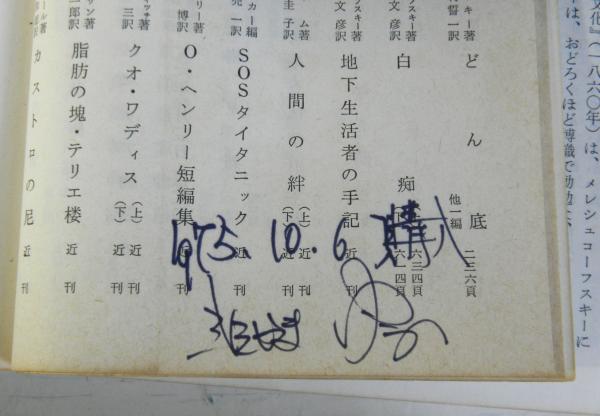 文化』(一八六〇年)は、メレシュコーフスキーに
は、おどろくほど博識で勤勉な、
キー著
哲一訳
どん底
他一編
二三六頁
フスキー著
文彦訳
白痴
六三四頁
六二四頁
フスキー著
文彦訳
地下生活者の手記
近刊
ム著
圭子訳
人間の絆
(上)
(下)
近刊
近刊
カー編
亮一訳
SOSタイタニック
近刊
リー著
博訳
O・ヘンリー短編集
近刊
ィッチ著
三訳
クオ・ワディス
(上)
(下)
近刊
サン著
二郎訳
脂肪の塊・テリエ楼
近刊
ール著
訳
カストロの尼
近刊
1975.10.6 購入